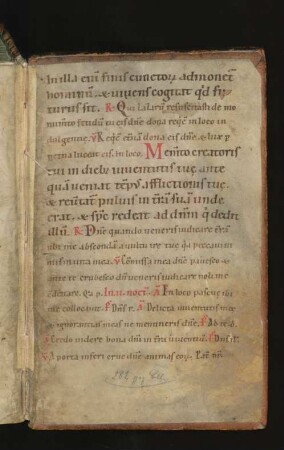 In illa eni finis cunctorꝝ admonet
hominum & uiuens cogitat qd fu
turus sit. ℟ Qui lazarum resuscitasti de mo
numento fetidum tu eis dne dona requie & locu in
dulgentie. ℣ Requie eterna dona eis dne & lux p
petua luceat eis. & locu. Memento creatoris
tui in diebus iuuentutis tue ante
quam ueniat temp afflictionis tue
& reuertatur puluis in terram suam unde
erat & spc redeat ad dnm q dedit
illum. ℟ Dne quando ueneris iudicare terra
ubi me abscondam a uultu ire tue quia peccaui
nimis in uita mea. ℣ Comissa mea dne pauesco &
ante te erubesco dum ueneris iudicare noli me
condemnare. Qa p. In ii. noct. A In loco pascue ibi
me collocauit. Dns r. A Delicta iuuentutis mee
& ignorantias meas ne memineris dne. Ad te d.
A Credo uidere bona dni in terra uiuentiu. Dns ill
℣ A porta inferi erue dne animas eoꝝ. Pat nr